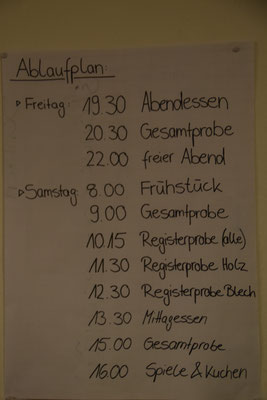 Ablaufplan:
▹Freitag: 19.30 Abendessen
20.30 Gesamtprobe
22.00 freier Abend
▹Samstag: 8.00 Frühstück
9.00 Gesamtprobe
10.15 Registerprobe (alle)
11.30 Registerprobe Holz
12.30 Registerprobe Blech
13.30 Mittagessen
15.00 Gesamtprobe
16.00 Spiele & Kuchen